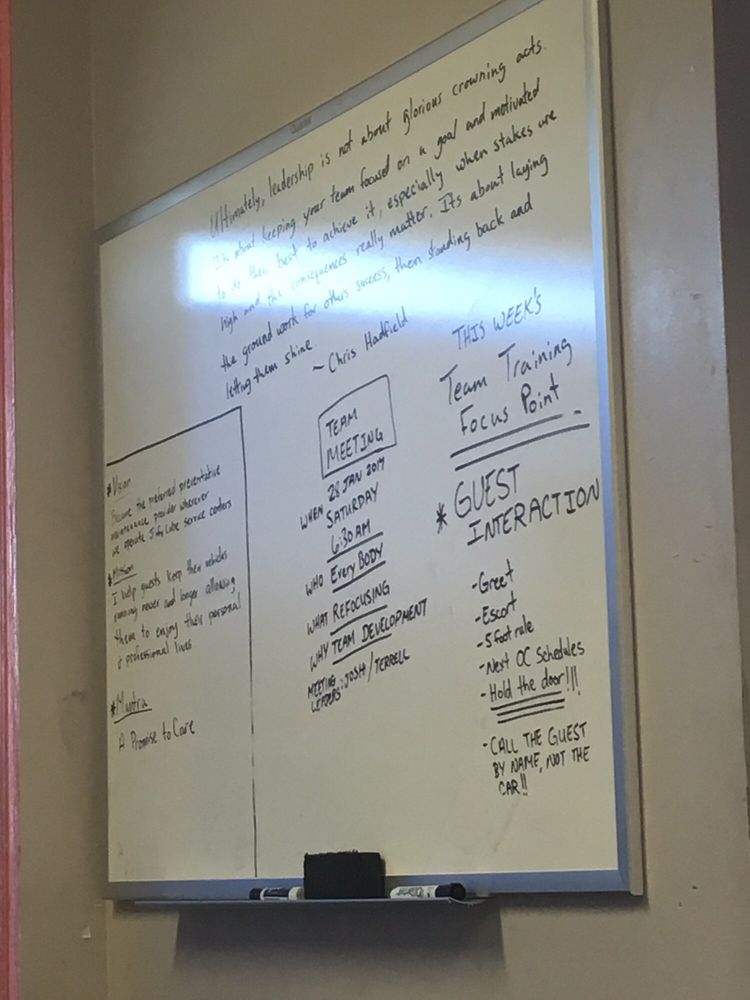 Ultimately, leadership is not about glorious crowning acts.
It's about keeping your team focused on a goal and motivated
to do their best to achieve it, especially when stakes are
high and the consequences really matter. Its about laying
the ground work for others success, then standing back and
letting them shine.
~ Chris Hadfield
* Vision
Become the preferred preventative
maintenance provider wherever
we operate Jiffy Lube service centers
* Mission
I help guests keep their vehicles
running newer and longer allowing
them to enjoy their personal
& professional lives
* Mantra
A Promise to Care
TEAM
MEETING
WHEN 28 JAN 2017
SATURDAY
6:30 AM
WHO EveryBODY
WHAT REFOCUSING
WHY TEAM DEVELOPMENT
MEETING
LEADERS: JOSH / TERRELL
THIS WEEK'S
Team Training
Focus Point.
* GUEST
INTERACTION
- Greet
- Escort
- 5 foot rule
- Next OC Schedules
- Hold the door!!!
- CALL THE GUEST
BY NAME, NOT THE
CAR!!